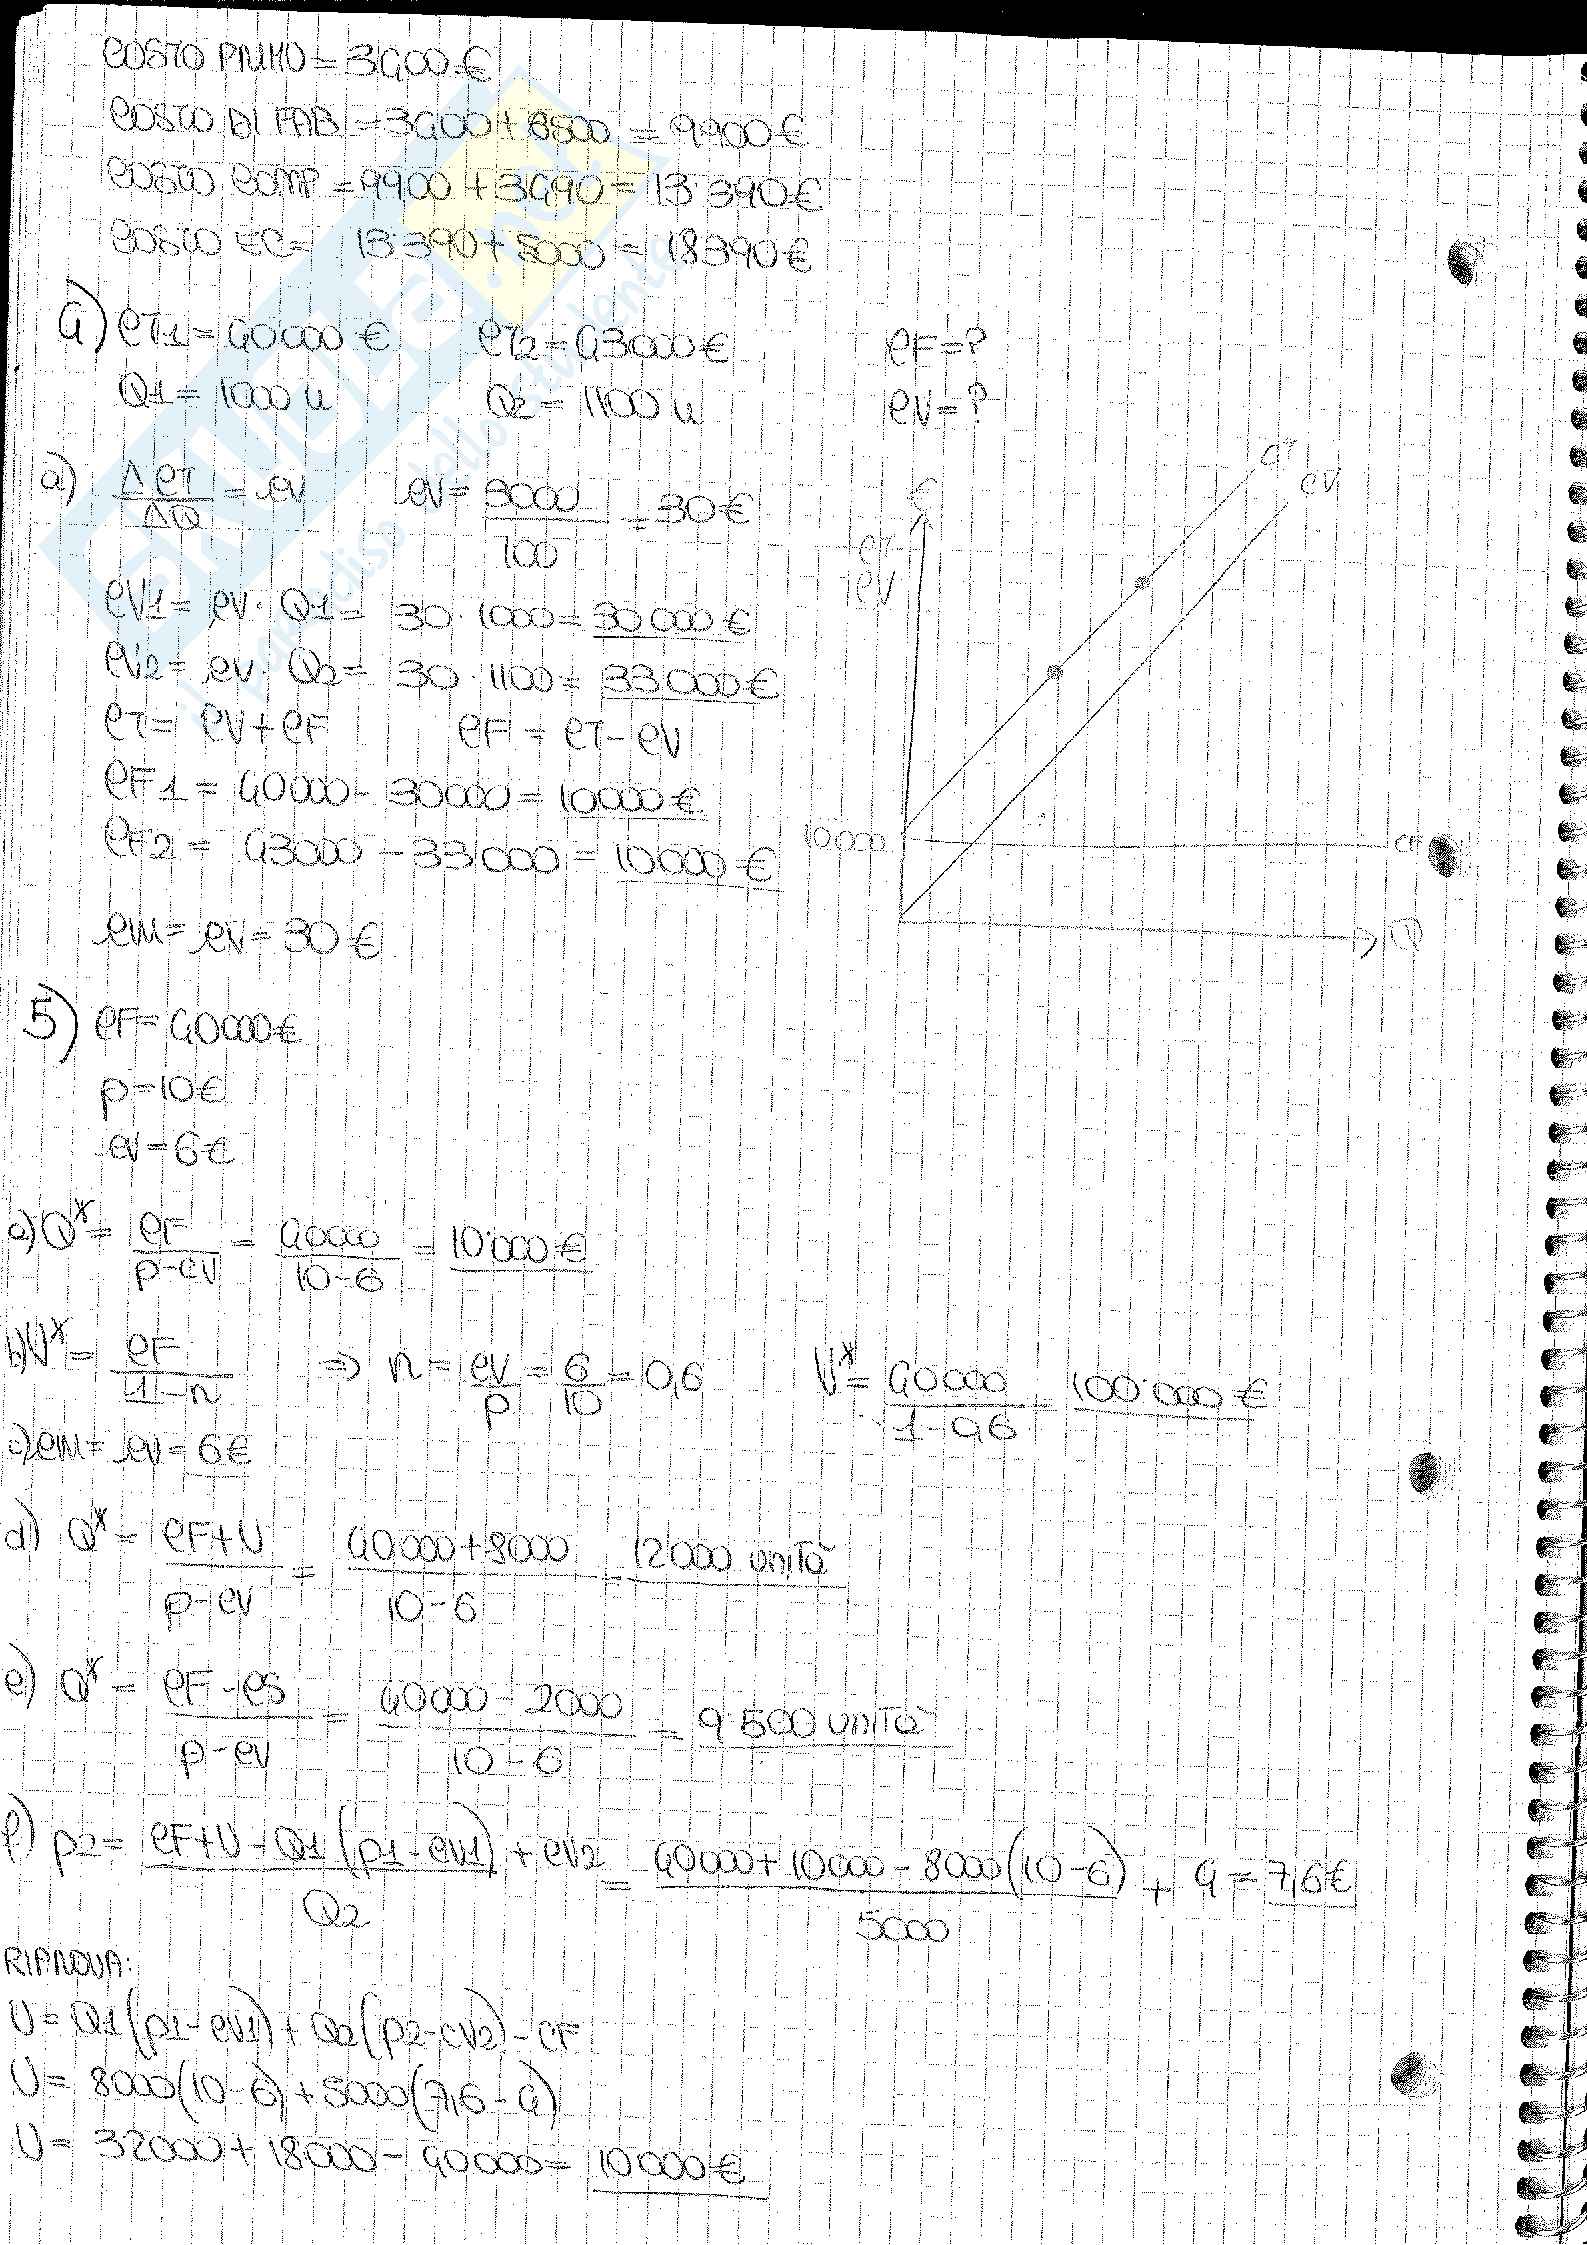 COSTO PRIMO = 3400 €
COSTO DI FAB = 3400 + 6500 = 9900 €
COSTO COMP = 9900 + 3490 = 13.390 €
COSTO EC = 13.390 + 5000 = 18390 €
4) CT1 = 40000 € CT2 = 43000 € CF = ?
Q1 = 1000 u Q2 = 1100 u CV = ?
a) ΔCT/ΔQ = cv cv = 3000/100 = 30 €
CV1 = cv · Q1 = 30 · 1000 = 30 000 €
CV2 = cv · Q2 = 30 · 1100 = 33 000 €
CT = CV + CF CF = CT - CV
CF1 = 40000 - 30000 = 10000 €
CF2 = 43000 - 33000 = 10000 €
cm = cv = 30 €
€
CT
CV
CT
CV
10000
CF
Q
5) CF = 40000 €
p = 10 €
cv = 6 €
a) Q* = CF/(p-cv) = 40000/(10-6) = 10'000 €
b) V* = CF/(1-n) ⇒ n = cv/p = 6/10 = 0,6 V* = 40000/(1-0,6) = 100'000 €
c) cm = cv = 6 €
d) Q* = (CF+U)/(p-cv) = (40000+8000)/(10-6) = 12000 unità
e) Q* = (CF-CS)/(p-cv) = (40000-2000)/(10-6) = 9'500 unità
f) p2 = (CF+U-Q1(p1-cv1))/Q2 + cv2 = (40000+10000-8000(10-6))/5000 + 4 = 7,6 €
RIPROVA:
U = Q1(p1-cv1) + Q2(p2-cv2) - CF
U = 8000(10-6) + 5000(7,6-4)
U = 32000 + 18000 - 40000 = 10'000 €